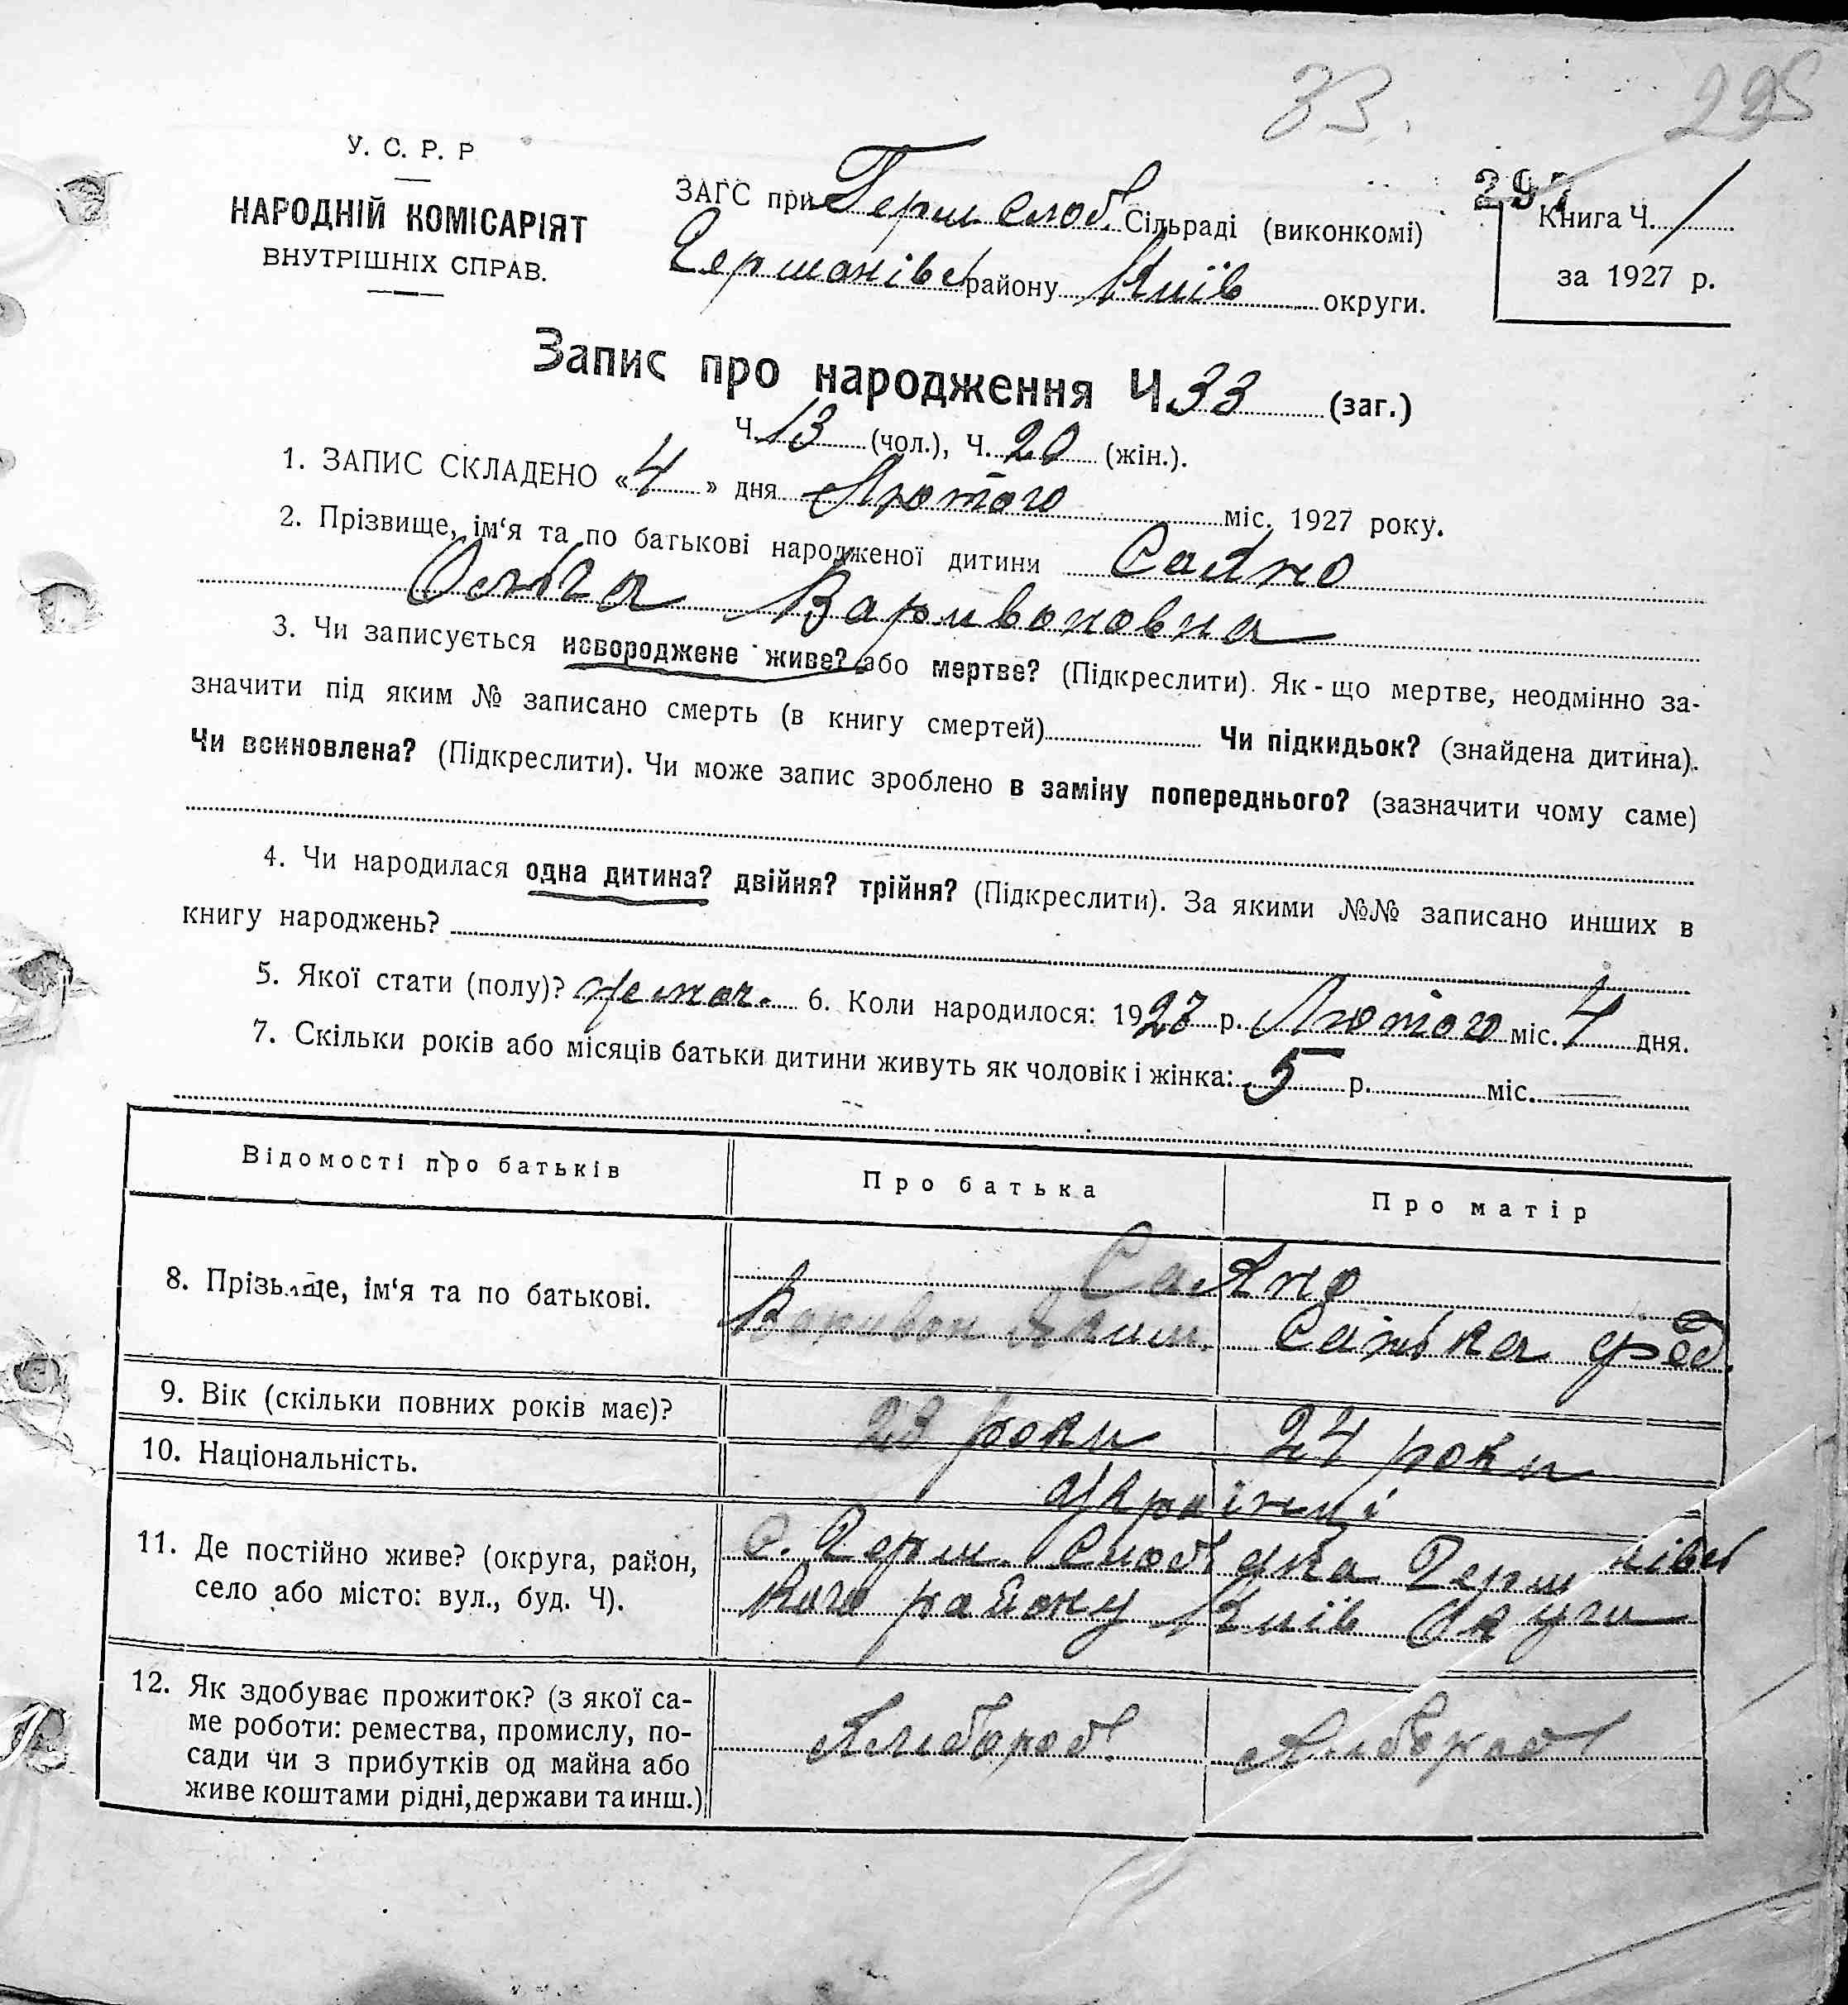 33.
295
297
У. С. Р. Р
НАРОДНІЙ КОМІСАРІЯТ
ВНУТРІШНІХ СПРАВ.
ЗАГС при Герм Слоб. Сільраді (виконкомі)
Германівс району Київ округи.
Книга Ч. 1
за 1927 р.
Запис про народження Ч. 33 (заг.)
Ч. 13 (чол.), Ч. 20 (жін.).
1. ЗАПИС СКЛАДЕНО «4» дня Лютого міс. 1927 року.
2. Прізвище, ім‘я та по батькові народженої дитини Саєнко
Ольга Варивоновна
3. Чи записується новороджене живе? або мертве? (Підкреслити). Як-що мертве, неодмінно за-
значити під яким № записано смерть (в книгу смертей) Чи підкидьок? (знайдена дитина).
Чи всиновлена? (Підкреслити). Чи може запис зроблено в заміну попереднього? (зазначити чому саме)
4. Чи народилася одна дитина? двійня? трійня? (Підкреслити). За якими №№ записано инших в
книгу народжень?
5. Якої стати (полу)? 6. Коли народилося: 1927 р. Лютого міс. 4 дня.
7. Скільки років або місяців батьки дитини живуть як чоловік і жінка: 5 р. міс. —
Відомості про батьків
Про батька
Про матір
8. Прізвище, ім‘я та по батькові.
Варивон Яким. Санька Фед.
9. Вік (скільки повних років має)?
28 роки 24 роки
10. Національність.
Українці
11. Де постійно живе? (округа, район,
село або місто: вул., буд. Ч).
С. Герм. Слобідка Герм нівсь
кого району Київ Округи
12. Як здобуває прожиток? (з якої са-
ме роботи: ремества, промислу, по-
сади чи з прибутків од майна або
живе коштами рідні, держави та инш.)
Хлібороб. Хлібороб